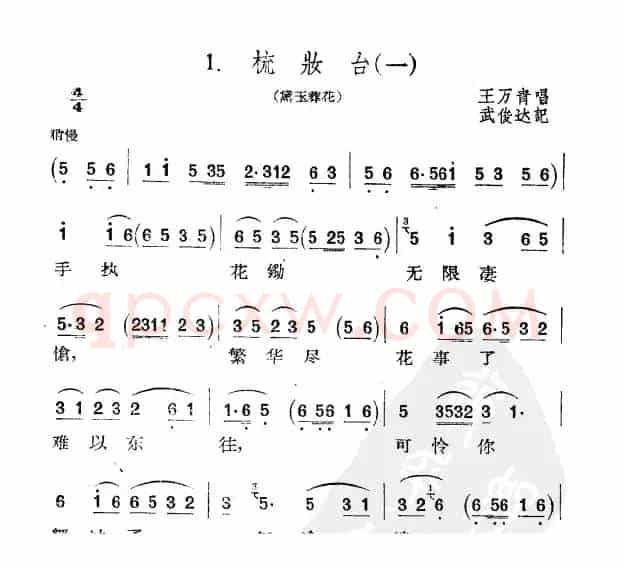 1. 梳妝台(一)
(黛玉葬花)
王万青唱
武俊达記
4/4
稍慢
(5 5 6 | 1 1 5 35 2·312 6 3 | 5 6 6·561 5 3 5 6 |
1 1 6 (6 5 3 5) | 6 5 3 5 (5 25 3 6) | 3 5 1 3 6 5
手执 花鋤 无限凄
5·3 2 (2311 2 3) | 3 5 2 3 5 (5 6) | 6 1 65 6·5 3 2
愴, 繁华尽 花事了
3 1 2 3 2 6 1 | 1·6 5 (6 56 1 6) | 5 3532 3 1·
难以东 往, 可怜你
6 1 6 6 5 3 5 | 3 3 5· 5 3 1 | 3 2 1 6 (6 56 1 6)
qpcxw.com